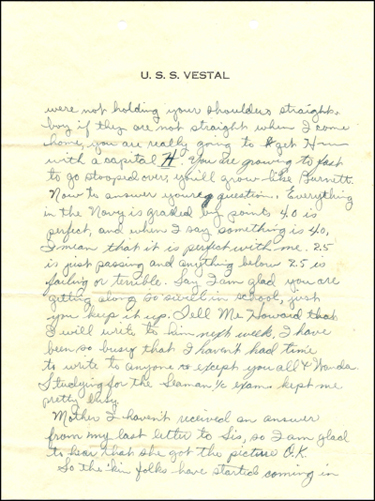 U. S. S. VESTAL
were not holding your shoulders straight.
boy if they are not straight when I come
home, you are really going to get H---
with a capital H. You are growing to fast
to go stooped over, you'll grow like Burnett.
Now to answer your question. Everything
in the Navy is graded by points 4.0 is
perfect, and when I say something is 4.0,
I mean that it is perfect with me. 2.5
is just passing and anything below 2.5 is
failing or terrible. Say I am glad you are
getting along so swell in school, just
you keep it up. Tell Me Howard that
I will write to him next week, I have
been so busy that I haven't had time
to write to anyone except you all & Wanda
Studying for the Seaman 1/c exam kept me
pretty busy.
Mother I haven't received an answer
from my last letter to Sis, so I am glad
to hear that she got the picture O.K.
So the kin folks have started coming in